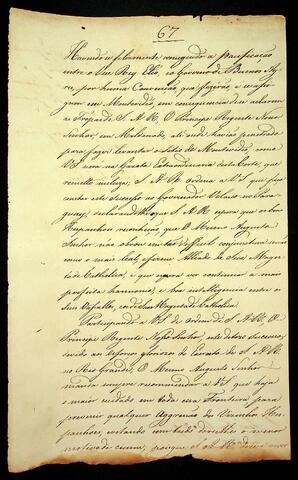 67
Havendo-se felizmente conseguido a pacificação
entre o Vice Rey Elio, e o Governo de Buenos Ay-
res, por huma Convenção, que fizerão, e se assig-
nou em Montevideo, em consequencia de se acharem
as Tropas de S. A. R. O Principe Regente Nosso
Senhor, em Maldonado, até onde havião penetrado
para fazer levantar o Sitio de Montevideo, como
VS. verá na Gazeta Extraordinaria desta Corte, que
remetto inclusa; S. A. R. ordena a VS. que faça
constar este successo ao Governador Velasco no Para-
guay, declarando-lhe que S. A. R. espera que os bons
Hespanhoes reconheção que O Mesmo Augusto
Senhor não obrou em tão difficil conjunctura senão
como o mais leal, e firme Alliado de Sua Mages-
tade Catholica, e que espera ver continuar a mais
perfeita harmonia, e boa intelligencia entre os
Seus Vassallos, e os de Sua Magestade Catholica.
Participando a VS. de ordem de S. A. R. O
Principe Regente Nosso Senhor, este ditoso Successo,
devido ao esforço glorioso do Exercito de S. A. R.
no Rio Grande, O Mesmo Augusto Senhor
manda sempre recommendar a VS. que haja
o maior cuidado em toda essa Fronteira para
prevenir qualquer Aggressão dos Vezinhos Hes-
panhoes, evitando com tudo dar-lhes o menor
motivo de ciume, porque S. A. R.